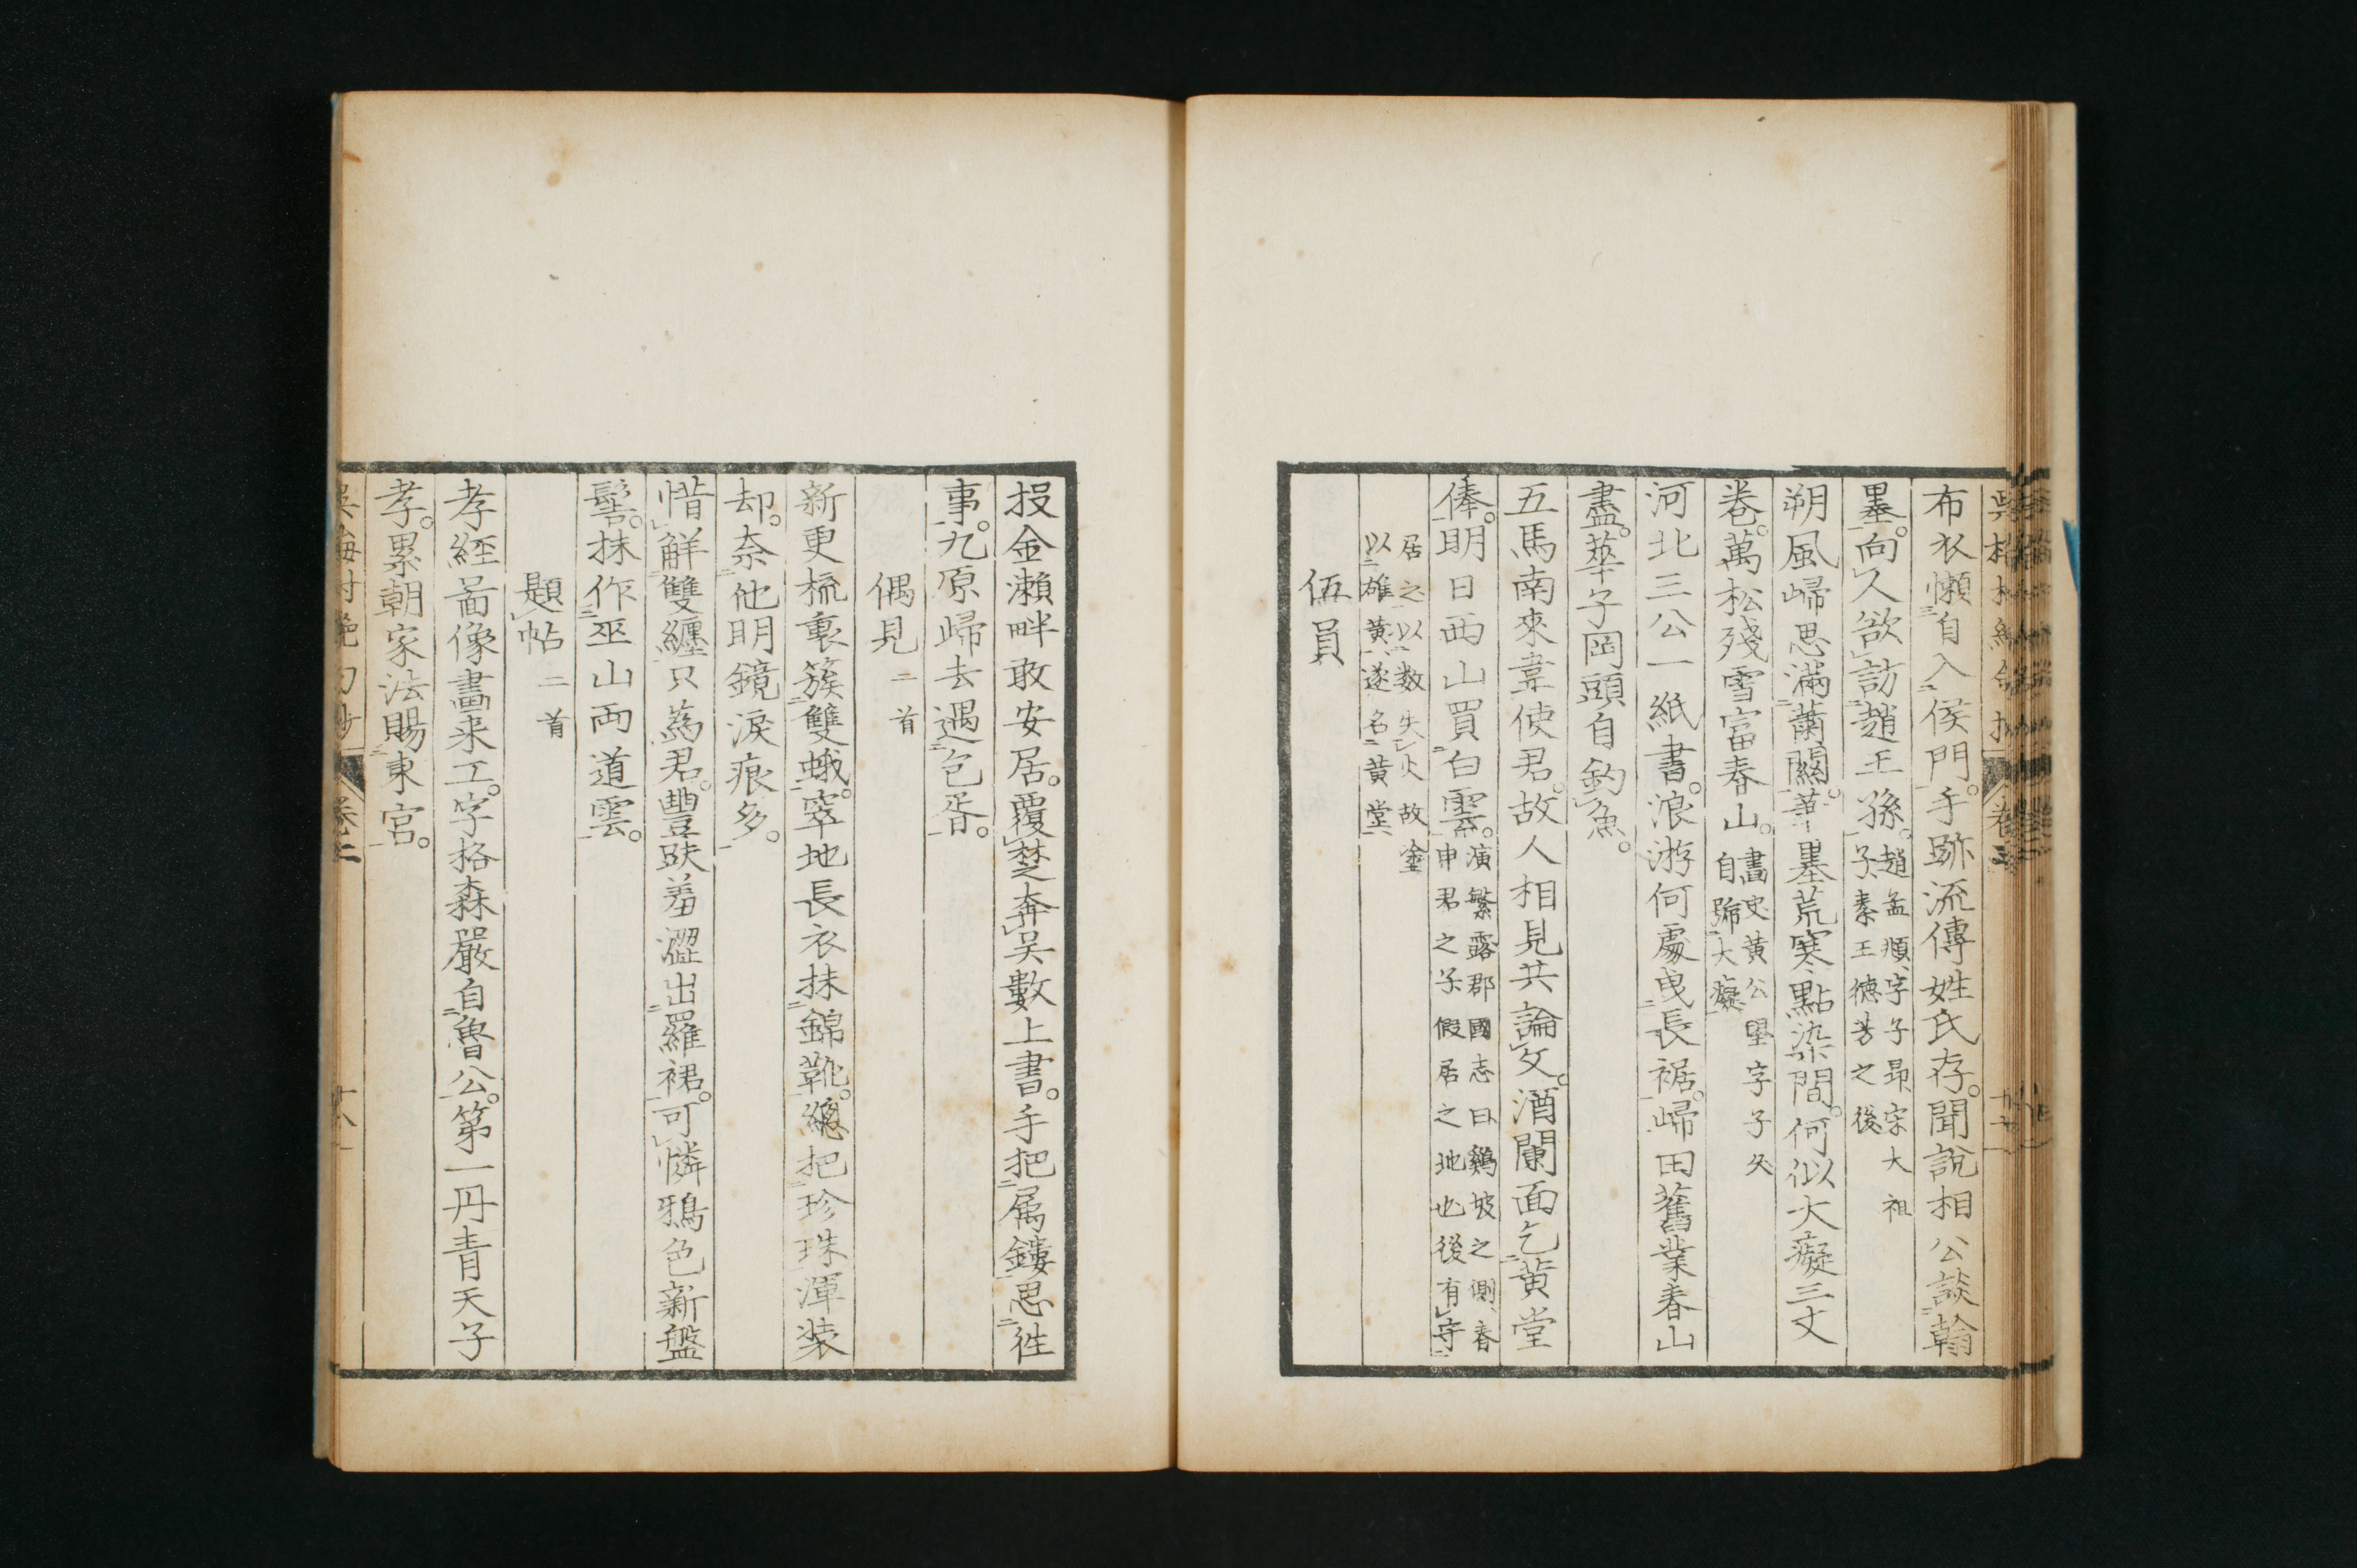 布衣懶自入侯門。手跡流傳姓氏存。聞說相公談翰
墨。向人欲訪趙王孫。趙孟頫字子昂宋大祖
子秦王德芳之後
朔風歸思滿蕭關。華墨荒寒點染間。何似大癡三丈
卷。萬松殘雪富春山。畫史黃公望字子久
自號大癡
河北三公一紙書。浪游何處曳長裾。歸田舊業春山
盡。華子岡頭自釣魚。
五馬南來韋使君。故人相見共論文。酒闌面乞黃堂
俸。明日西山買白雲。演繁露郡國志曰鷄坡之側春
申君之子假居之地也後有守
居之以數失火故塗
以雄黃遂名黃堂
伍員
投金瀨畔敢安居。覆楚奔吳數上書。手把屬鏤思往
事。九原歸去遇包胥。
偶見 二首
新更梳裹簇雙蛾。窣地長衣抹錦靴。總把珍珠渾裝
却。奈他明鏡淚痕多。
惜解雙纏只為君。豐趺羞澀出羅裙。可憐鴉色新盤
髻。抹作巫山兩道雲。
題帖 二首
孝經啚像畫来工。字格森嚴自魯公。第一丹青天子
孝。累朝家法賜東宮。
吳梅村絶句抄 卷二 十八